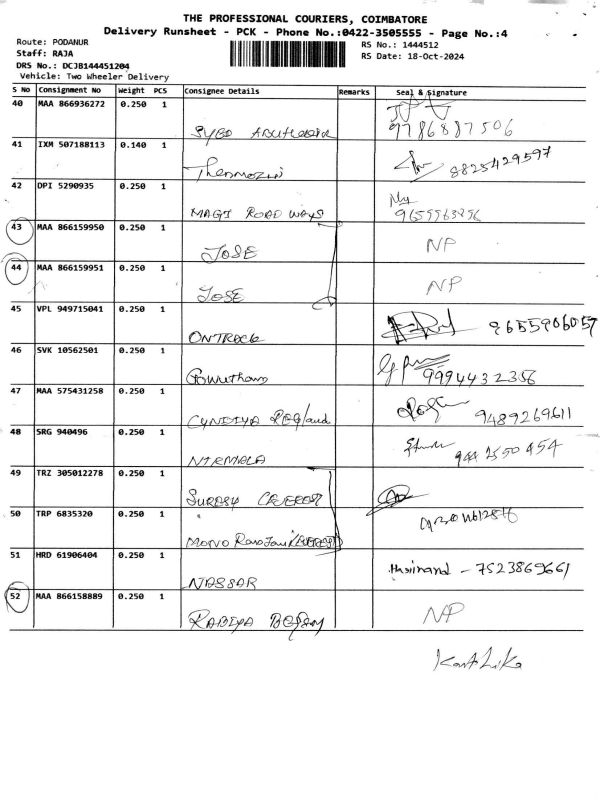 THE PROFESSIONAL COURIERS, COIMBATORE
Delivery Runsheet - PCK - Phone No.:0422-3505555 - Page No.:4
Route: PODANUR
Staff: RAJA
DRS No.: DCJB144451204
Vehicle: Two Wheeler Delivery
RS No.: 1444512
RS Date: 18-Oct-2024
S No Consignment No Weight PCS Consignee Details Remarks Seal & Signature
40 MAA 866936272 0.250 1 9786887506
41 IXM 507188113 0.140 1 Thenmozhi 8825429597
42 DPI 5290935 0.250 1 MAGI ROAD WAYS
43 MAA 866159950 0.250 1 JOSE NP
44 MAA 866159951 0.250 1 JOSE NP
45 VPL 949715041 0.250 1 ONTRACK 9655906057
46 SVK 10562501 0.250 1 Gowtham 9994432356
47 MAA 575431258 0.250 1 9489269611
48 SRG 940496 0.250 1 NIRMALA 9442550454
49 TRZ 305012278 0.250 1 SURESH
50 TRP 6835320 0.250 1 MONO
51 HRD 61906404 0.250 1 NASSAR 7523869661
52 MAA 866158889 0.250 1 RABIYA NP
Karthika